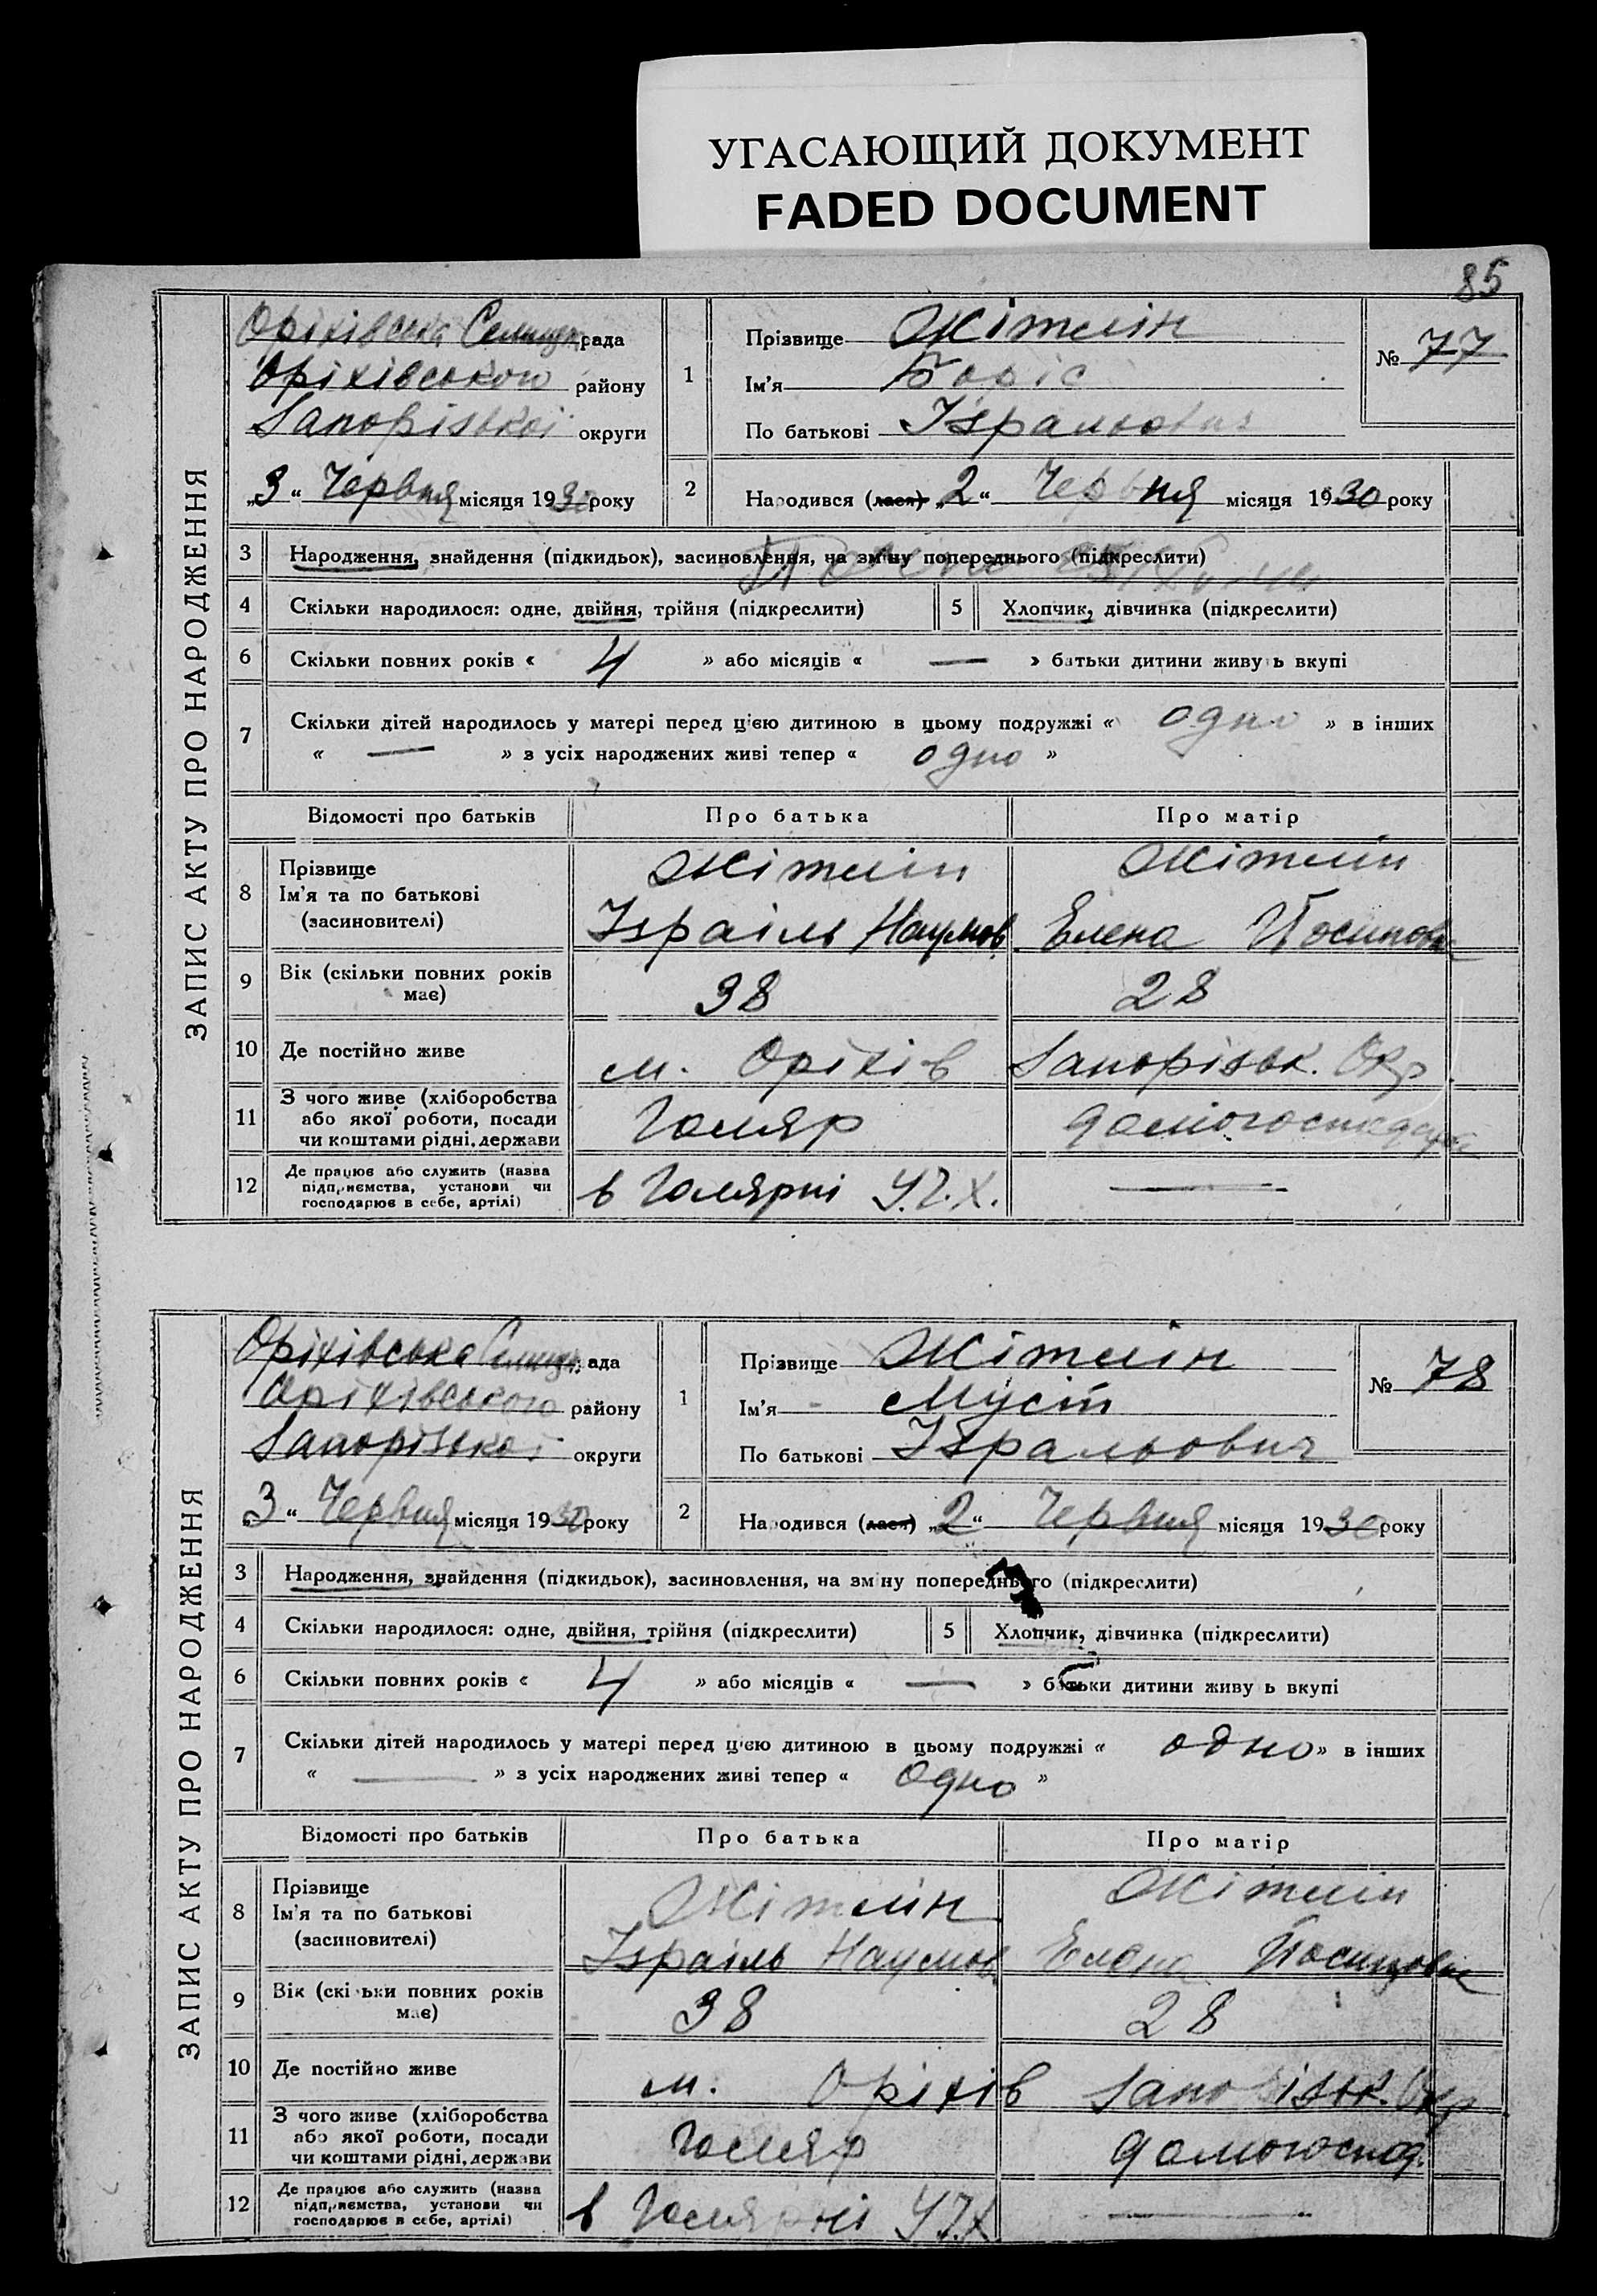 УГАСАЮЩИЙ ДОКУМЕНТ
FADED DOCUMENT
85
ЗАПИС АКТУ ПРО НАРОДЖЕННЯ
Оріхівська Селищн рада
Оріхівського району
Запорізької округи
„3“ Червня місяця 1930 року
1 Прізвище Жітлін
Ім'я Боріс
По батькові Ізральович
№ 77
2 Народився (лася) „2“ Червня місяця 1930 року
3 Народження, знайдення (підкидьок), засиновлення, на зміну попереднього (підкреслити)
4 Скільки народилося: одне, двійня, трійня (підкреслити) 5 Хлопчик, дівчинка (підкреслити)
6 Скільки повних років « 4 » або місяців « — » батьки дитини живуть вкупі
7 Скільки дітей народилось у матері перед цією дитиною в цьому подружжі « одно » в інших
« — » з усіх народжених живі тепер « одно »
Відомості про батьків Про батька Про матір
8 Прізвище Жітлін Жітлін
Ім'я та по батькові Ізраіль Наумов Елена Йосиповна
(засиновителі)
9 Вік (скільки повних років має) 38 28
10 Де постійно живе м. Оріхів Запорізьк. Окр.
11 З чого живе (хліборобства
або якої роботи, посади Голяр домогосподарка
чи коштами рідні, держави
12 Де працює або служить (назва
підприємства, установи чи в Голярні У.Т.Х. —
господарює в себе, артілі)
ЗАПИС АКТУ ПРО НАРОДЖЕННЯ
Оріхівська Селищн. рада
Оріхівського району
Запорізької округи
„3“ Червня місяця 1930 року
1 Прізвище Жітлін
Ім'я
По батькові Ізральович
№ 78
2 Народився (лася) „2“ Червня місяця 1930 року
3 Народження, знайдення (підкидьок), засиновлення, на зміну попереднього (підкреслити)
4 Скільки народилося: одне, двійня, трійня (підкреслити) 5 Хлопчик, дівчинка (підкреслити)
6 Скільки повних років « 4 » або місяців « — » батьки дитини живуть вкупі
7 Скільки дітей народилось у матері перед цією дитиною в цьому подружжі « одно » в інших
« — » з усіх народжених живі тепер « одно »
Відомості про батьків Про батька Про матір
8 Прізвище Жітлін Жітлін
Ім'я та по батькові Ізраіль Наумов. Елена Йосиповна
(засиновителі)
9 Вік (скільки повних років має) 38 28
10 Де постійно живе м. Оріхів Запорізьк. Окр.
11 З чого живе (хліборобства
або якої роботи, посади Голяр домогоспод.
чи коштами рідні, держави
12 Де працює або служить (назва
підприємства, установи чи в Голярні УТХ —
господарює в себе, артілі)